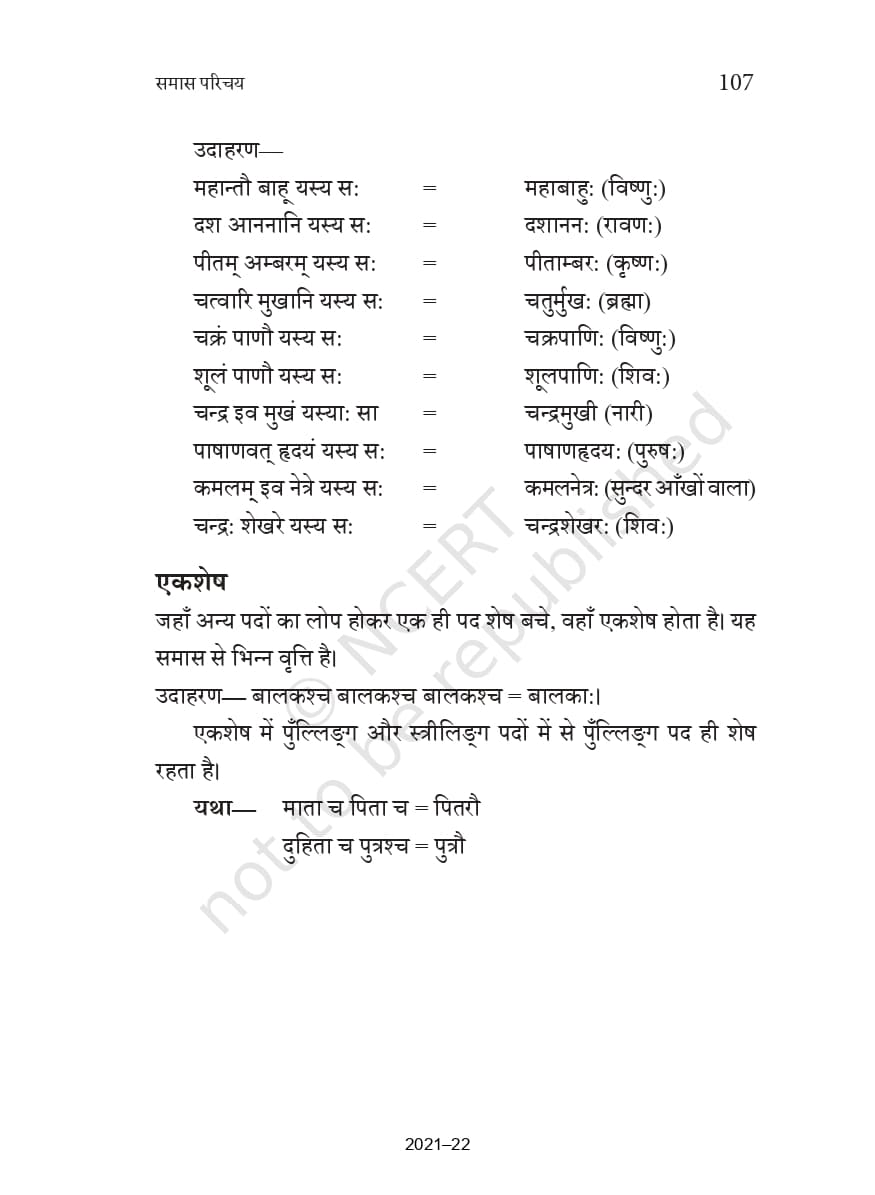 समास परिचय 107
उदाहरण—
महान्तौ बाहू यस्य स: = महाबाहु: (विष्णु:)
दश आननानि यस्य स: = दशानन: (रावण:)
पीतम् अम्बरम् यस्य स: = पीताम्बर: (कृष्ण:)
चत्वारि मुखानि यस्य स: = चतुर्मुख: (ब्रह्मा)
चक्रं पाणौ यस्य स: = चक्रपाणि: (विष्णु:)
शूलं पाणौ यस्य स: = शूलपाणि: (शिव:)
चन्द्र इव मुखं यस्या: सा = चन्द्रमुखी (नारी)
पाषाणवत् हृदयं यस्य स: = पाषाणहृदय: (पुरुष:)
कमलम् इव नेत्रे यस्य स: = कमलनेत्र: (सुन्दर आँखों वाला)
चन्द्र: शेखरे यस्य स: = चन्द्रशेखर: (शिव:)
एकशेष
जहाँ अन्य पदों का लोप होकर एक ही पद शेष बचे, वहाँ एकशेष होता है। यह
समास से भिन्न वृत्ति है।
उदाहरण— बालकश्च बालकश्च बालकश्च = बालका:।
एकशेष में पुँल्लिङ्ग और स्त्रीलिङ्ग पदों में से पुँल्लिङ्ग पद ही शेष
रहता है।
यथा— माता च पिता च = पितरौ
दुहिता च पुत्रश्च = पुत्रौ
© NCERT
not to be republished
2021–22